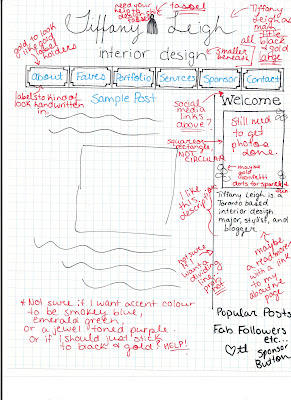 need your help to design tassel
tassel
Tiffany Leigh
Tiffany Leigh as main title all black & gold large
interior design
smaller beneath
gold to look like label holders
About
Faves
Portfolio
Services
Sponsor
Contact
labels to kind of look handwritten in
Sample Post
social media links above?
Welcome
Still need to get photos done.
square or rectangle NOT CIRCULAR
maybe gold confetti dots for sparkle
I like this description
Tiffany Leigh is a
Toronto based
interior design
major, stylist, and
blogger
not sure if I want a dividing line
maybe a read more with a link to my about me page
Popular Posts
Fab Followers
etc...
♡ tl
Sponsor
Button
* Not sure if I want accent colour
to be smokey blue,
emerald green,
or a jewel toned purple
or if I should just stick
to black & gold? HELP!